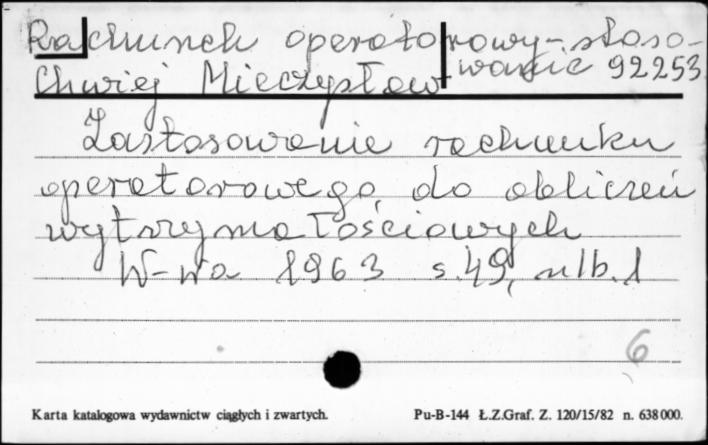 Rachunek operatorowy-stoso-
wanie 92253
Chwiej Mieczysław
Zastosowanie rachunku
operatorowego do obliczeń
wytrzymałościowych
W-wa 1963 s.49, nlb.1
6
Karta katalogowa wydawnictw ciągłych i zwartych. Pu-B-144 Ł.Z.Graf. Z. 120/15/82 n. 638000.